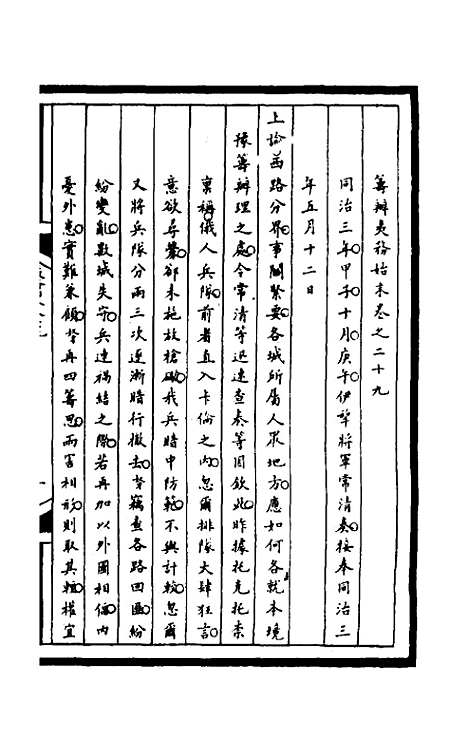 籌辦夷務始末卷之二十九
同治三年甲子十月庚午伊犂將軍常清奏接奉同治三
年五月十二日
上諭西路分界事關緊要各城所屬人眾地方應如何各就本境
豫籌辦理之處令常清等迅速查奏等因欽此昨據托克托柰
稟稱俄人兵隊前者直入卡倫之內忽爾排隊大肆狂言
意欲尋釁卻未施放槍礮我兵暗中防範不與計較忽爾
又將兵隊分兩三次逐漸暗行撤去奴才竊查各路回匪紛
紛變亂數城失守兵連禍結之際若再加以外國相偪內
憂外患實難兼顧奴才再四籌思兩害相形則取其輕權宜